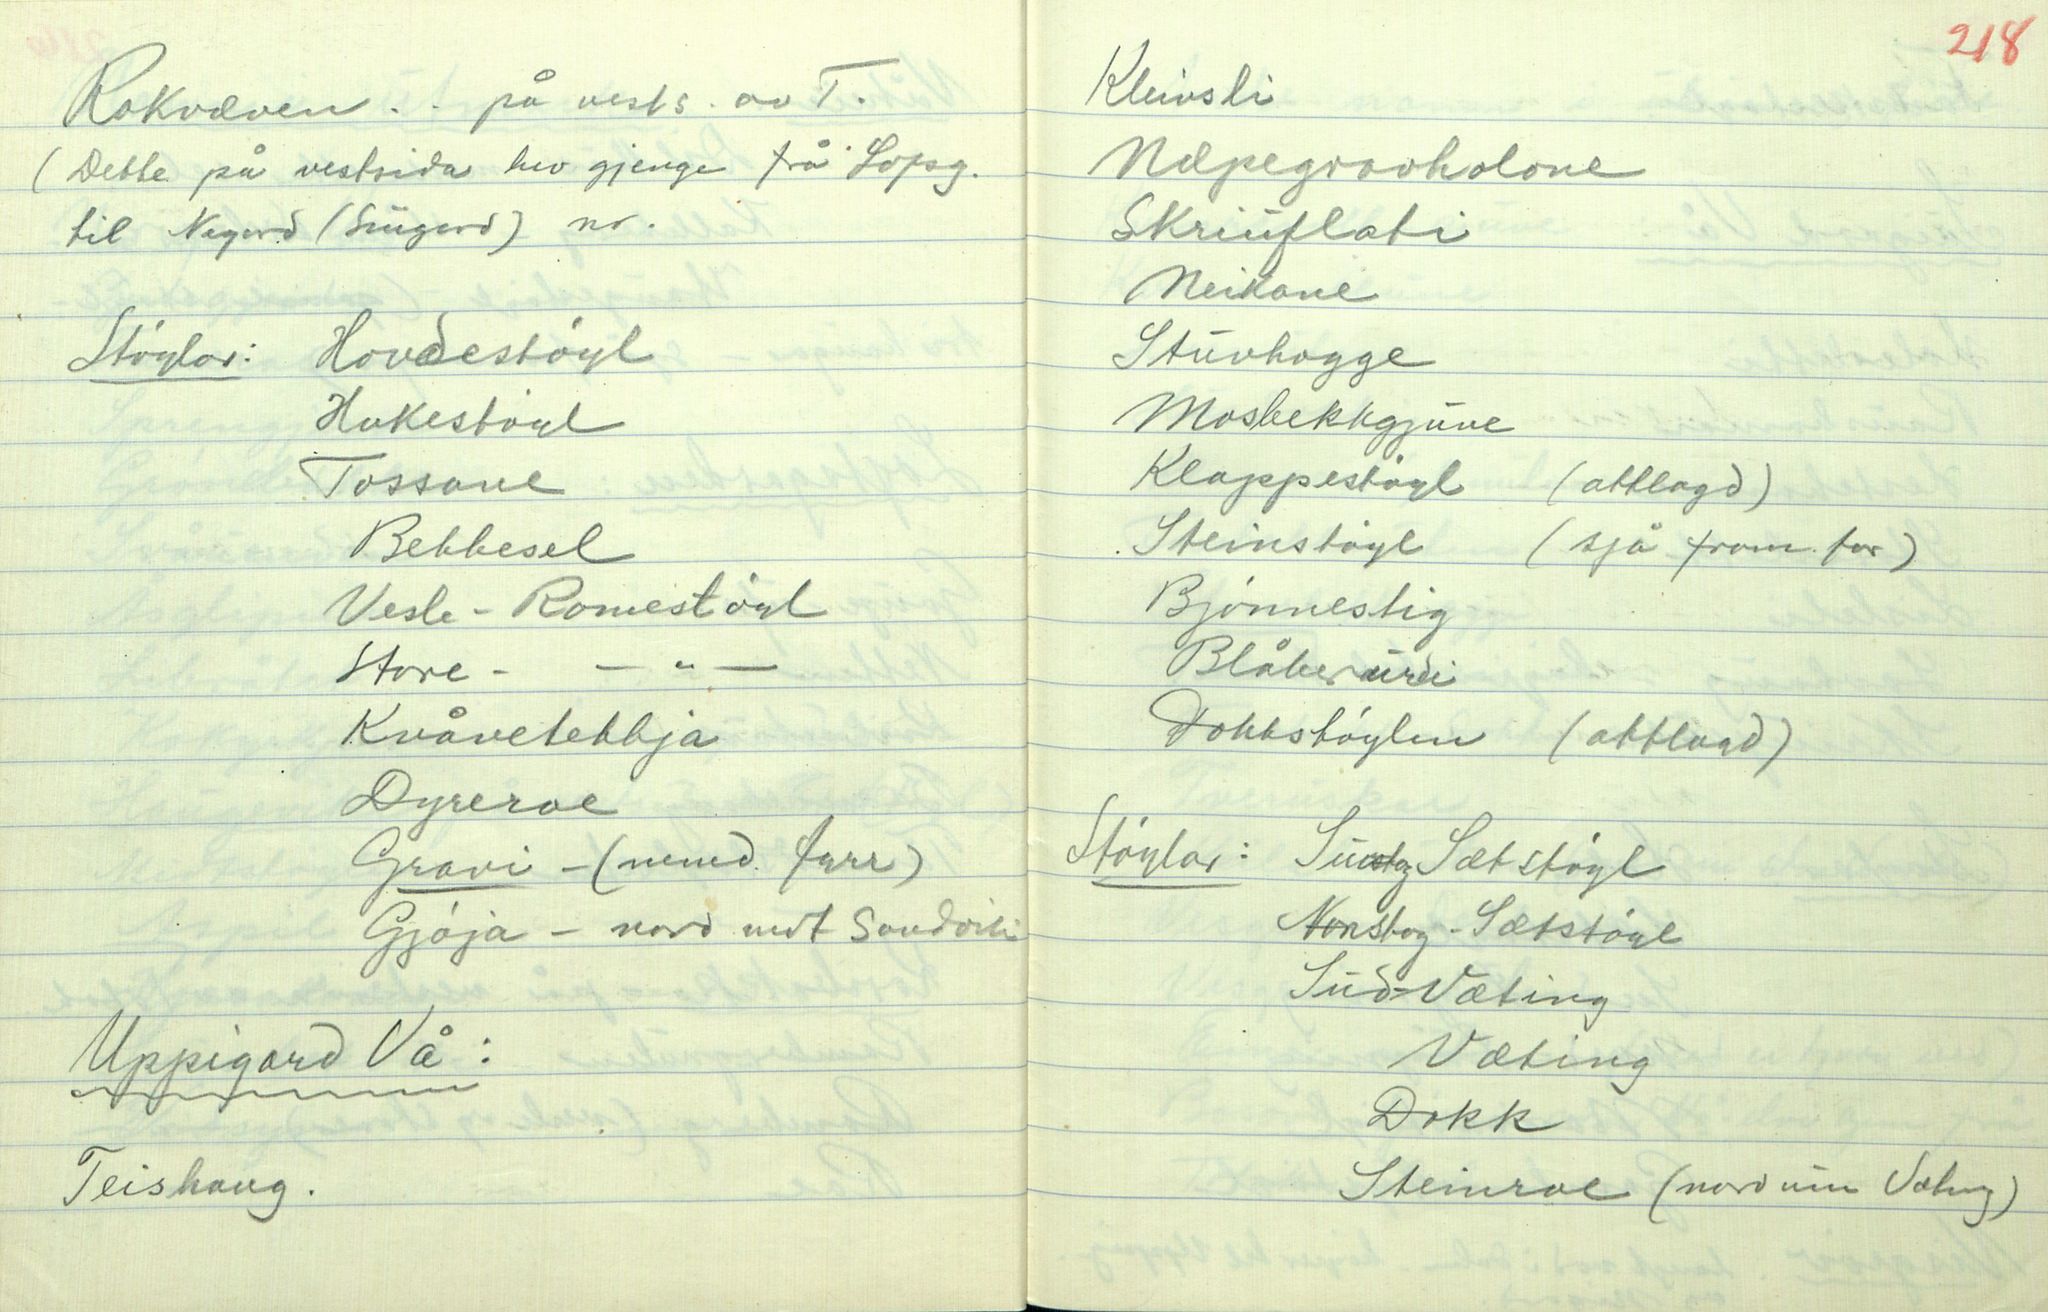 Rokvæven . . på vests. av T.
(Dette på vestsida hev gjenge frå Lopsg.
til Negard (Sŭgard) no.
Støylar: Hovdestøyl
Hukestøyl
Tossane
Bekkesel
Vesle-Romestøyl
Store- — " —
Kvåvetekkja
Dyreroe
Gravi - (nemnd fyrr)
Gjøja - nord mot
Uppigard Vå:
Teishaug.
218
Kleivsli
Næpegravholone
Skriŭflati
Neikane
Stŭvhogge
Mosbekkgjŭve
Klappestøyl (attlagd)
Steinstøyl (sjå fram. for)
Bjønnestig
Blåberŭrdi
Dokkstøylen (attlagd)
Støylar: Sætstøyl
Sætstøyl
Sŭd-Væting
Væting
Dokk
Steinroe (nord ŭm Væting)